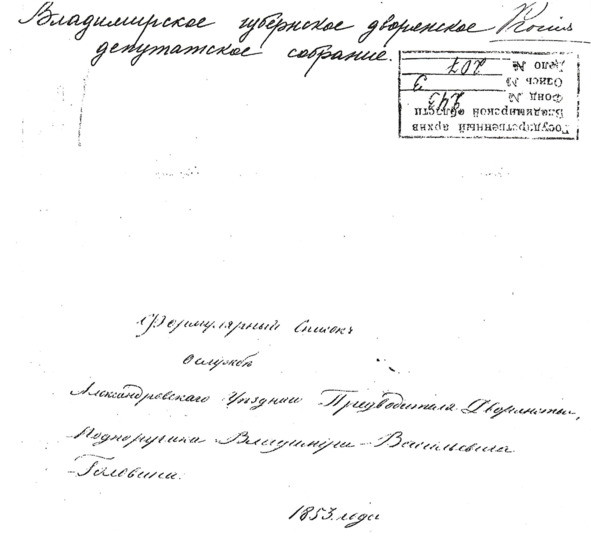 Владимирское губернское дворянское Копия
депутатское собрание.
Государственный архив
Владимирской области
Фонд № 243
Опись № 3
Дело № 207
Формулярный Списокъ
о службѣ
Александровскаго Уѣзднаго Предводителя Дворянства,
Подпоручика Владиміра Васильевича
Головина.
1853. года